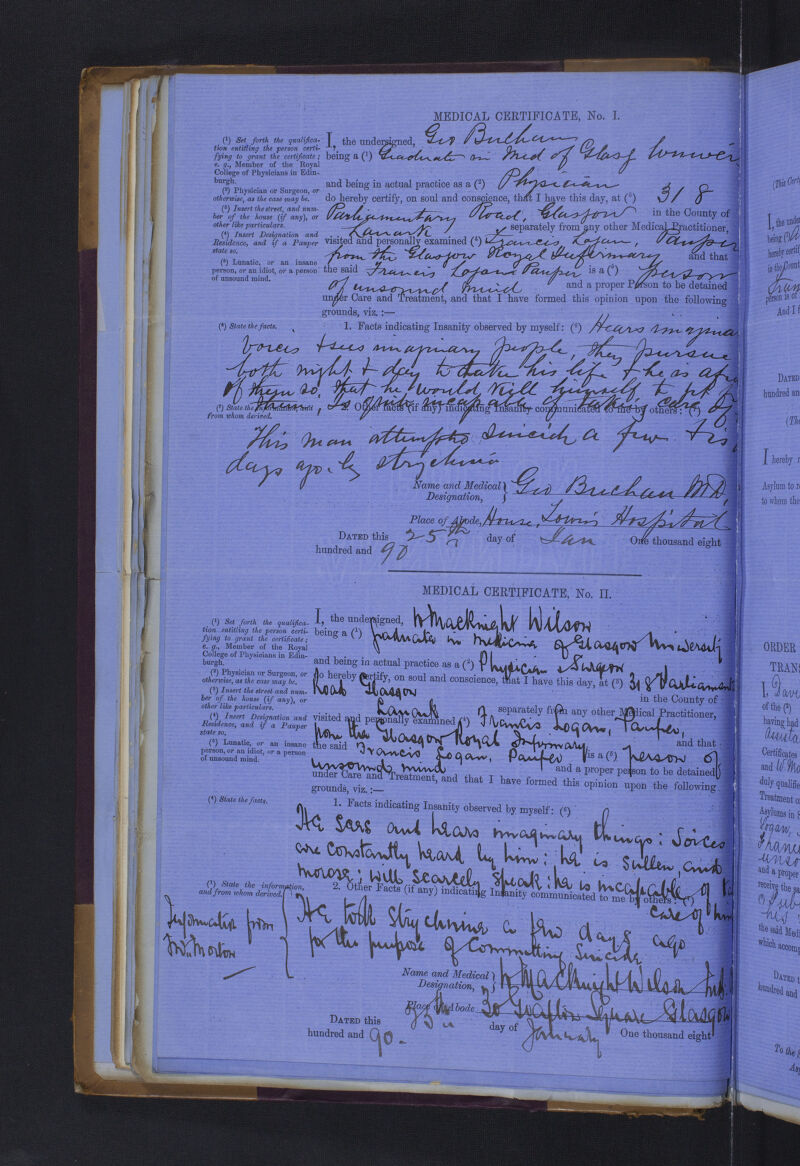 MEDICAL CERTIFICATE, No. I.
(1) Set forth the qualifica-
tion entitling the person certi-
fying to grant the certificate;
e. g., Member of the Royal
College of Physicians in Edin-
burgh.
(2) Physician or Surgeon, or
otherwise, as the case may be.
(3) Insert the street, and num-
ber of the house (if any), or
other like particulars.
(4) Insert Designation and
Residence, and if a Pauper
state so.
(5) Lunatic, or an insane
person, or an idiot, or a person
of unsound mind.
I, the undersigned, Geo Buchan
being a (1) Graduate in Med of Glasg
and being in actual practice as a (2) Physician
do hereby certify, on soul and conscience, that I have this day, at (3) 318
Parliamentary Road, Glasgow in the County of
Lanark separately from any other Medical Practitioner,
visited and personally examined (4) Francis Logan, Pauper
from the Glasgow Royal Infirmary and that
the said Francis Logan Pauper is a (5) person
of unsound mind and a proper Person to be detained
under Care and Treatment, and that I have formed this opinion upon the following
grounds, viz. :—
(6) State the facts.
1. Facts indicating Insanity observed by myself: (6) Hears imagina
voices & sees imaginary people, they pursue
both night & day to take his life & he is
of them so that he would kill himself to get
Is quite incapable of taking care of
(7) State the information, and
from whom derived.
2. Other facts (if any) indicating Insanity communicated to me by others: (7)
This man attempted suicide a few
days ago by strychnia
Name and Medical Designation, Geo Buchan M.D.
Place of Abode, House, Hospital
DATED this 25th day of Jan One thousand eight
hundred and 90
MEDICAL CERTIFICATE, No. II.
(1) Set forth the qualifica-
tion entitling the person certi-
fying to grant the certificate;
e. g., Member of the Royal
College of Physicians in Edin-
burgh.
(2) Physician or Surgeon, or
otherwise, as the case may be.
(3) Insert the street and num-
ber of the house (if any), or
other like particulars.
(4) Insert Designation and
Residence, and if a Pauper
state so.
(5) Lunatic, or an insane
person, or an idiot, or a person
of unsound mind.
I, the undersigned, W MacKnight Wilson
being a (1) graduate in Medicine of Glasgow University
and being in actual practice as a (2) Physician & Surgeon
do hereby certify, on soul and conscience, that I have this day, at (3) 318 Parliament
Road Glasgow in the County of
Lanark separately from any other Medical Practitioner,
visited and personally examined (4) Francis Logan, Pauper,
from the Glasgow Royal Infirmary, and that
the said Francis Logan, Pauper is a (5) person of
unsound mind and a proper person to be detained
under Care and Treatment, and that I have formed this opinion upon the following
grounds, viz. :—
(6) State the facts.
1. Facts indicating Insanity observed by myself: (6)
He sees and hears imaginary things: Voices
are constantly heard by him; he is sullen, and
morose; will scarcely speak; he is incapable of
care of him
(7) State the information,
and from whom derived.
2. Other Facts (if any) indicating Insanity communicated to me by others: (7)
Information from
Morton
He took Strychnine a few days ago
for the purpose of Committing Suicide
Name and Medical Designation, W MacKnight Wilson
Place of Abode 30 Square Glasgow
DATED this 25th day of January One thousand eight
hundred and 90.
I, the unde
hereby certif
in the Count
person is of
And I f
DATED
hundred an
I hereby
Asylum to r
to whom the
ORDER
TRAN
I,
of the (2)
having had
Certificates
and
duly qualifie
Treatment o
Asylums in S
Logan,
and a proper
receive the sa
the said Medi
which accomp
DATED
hundred and
To the